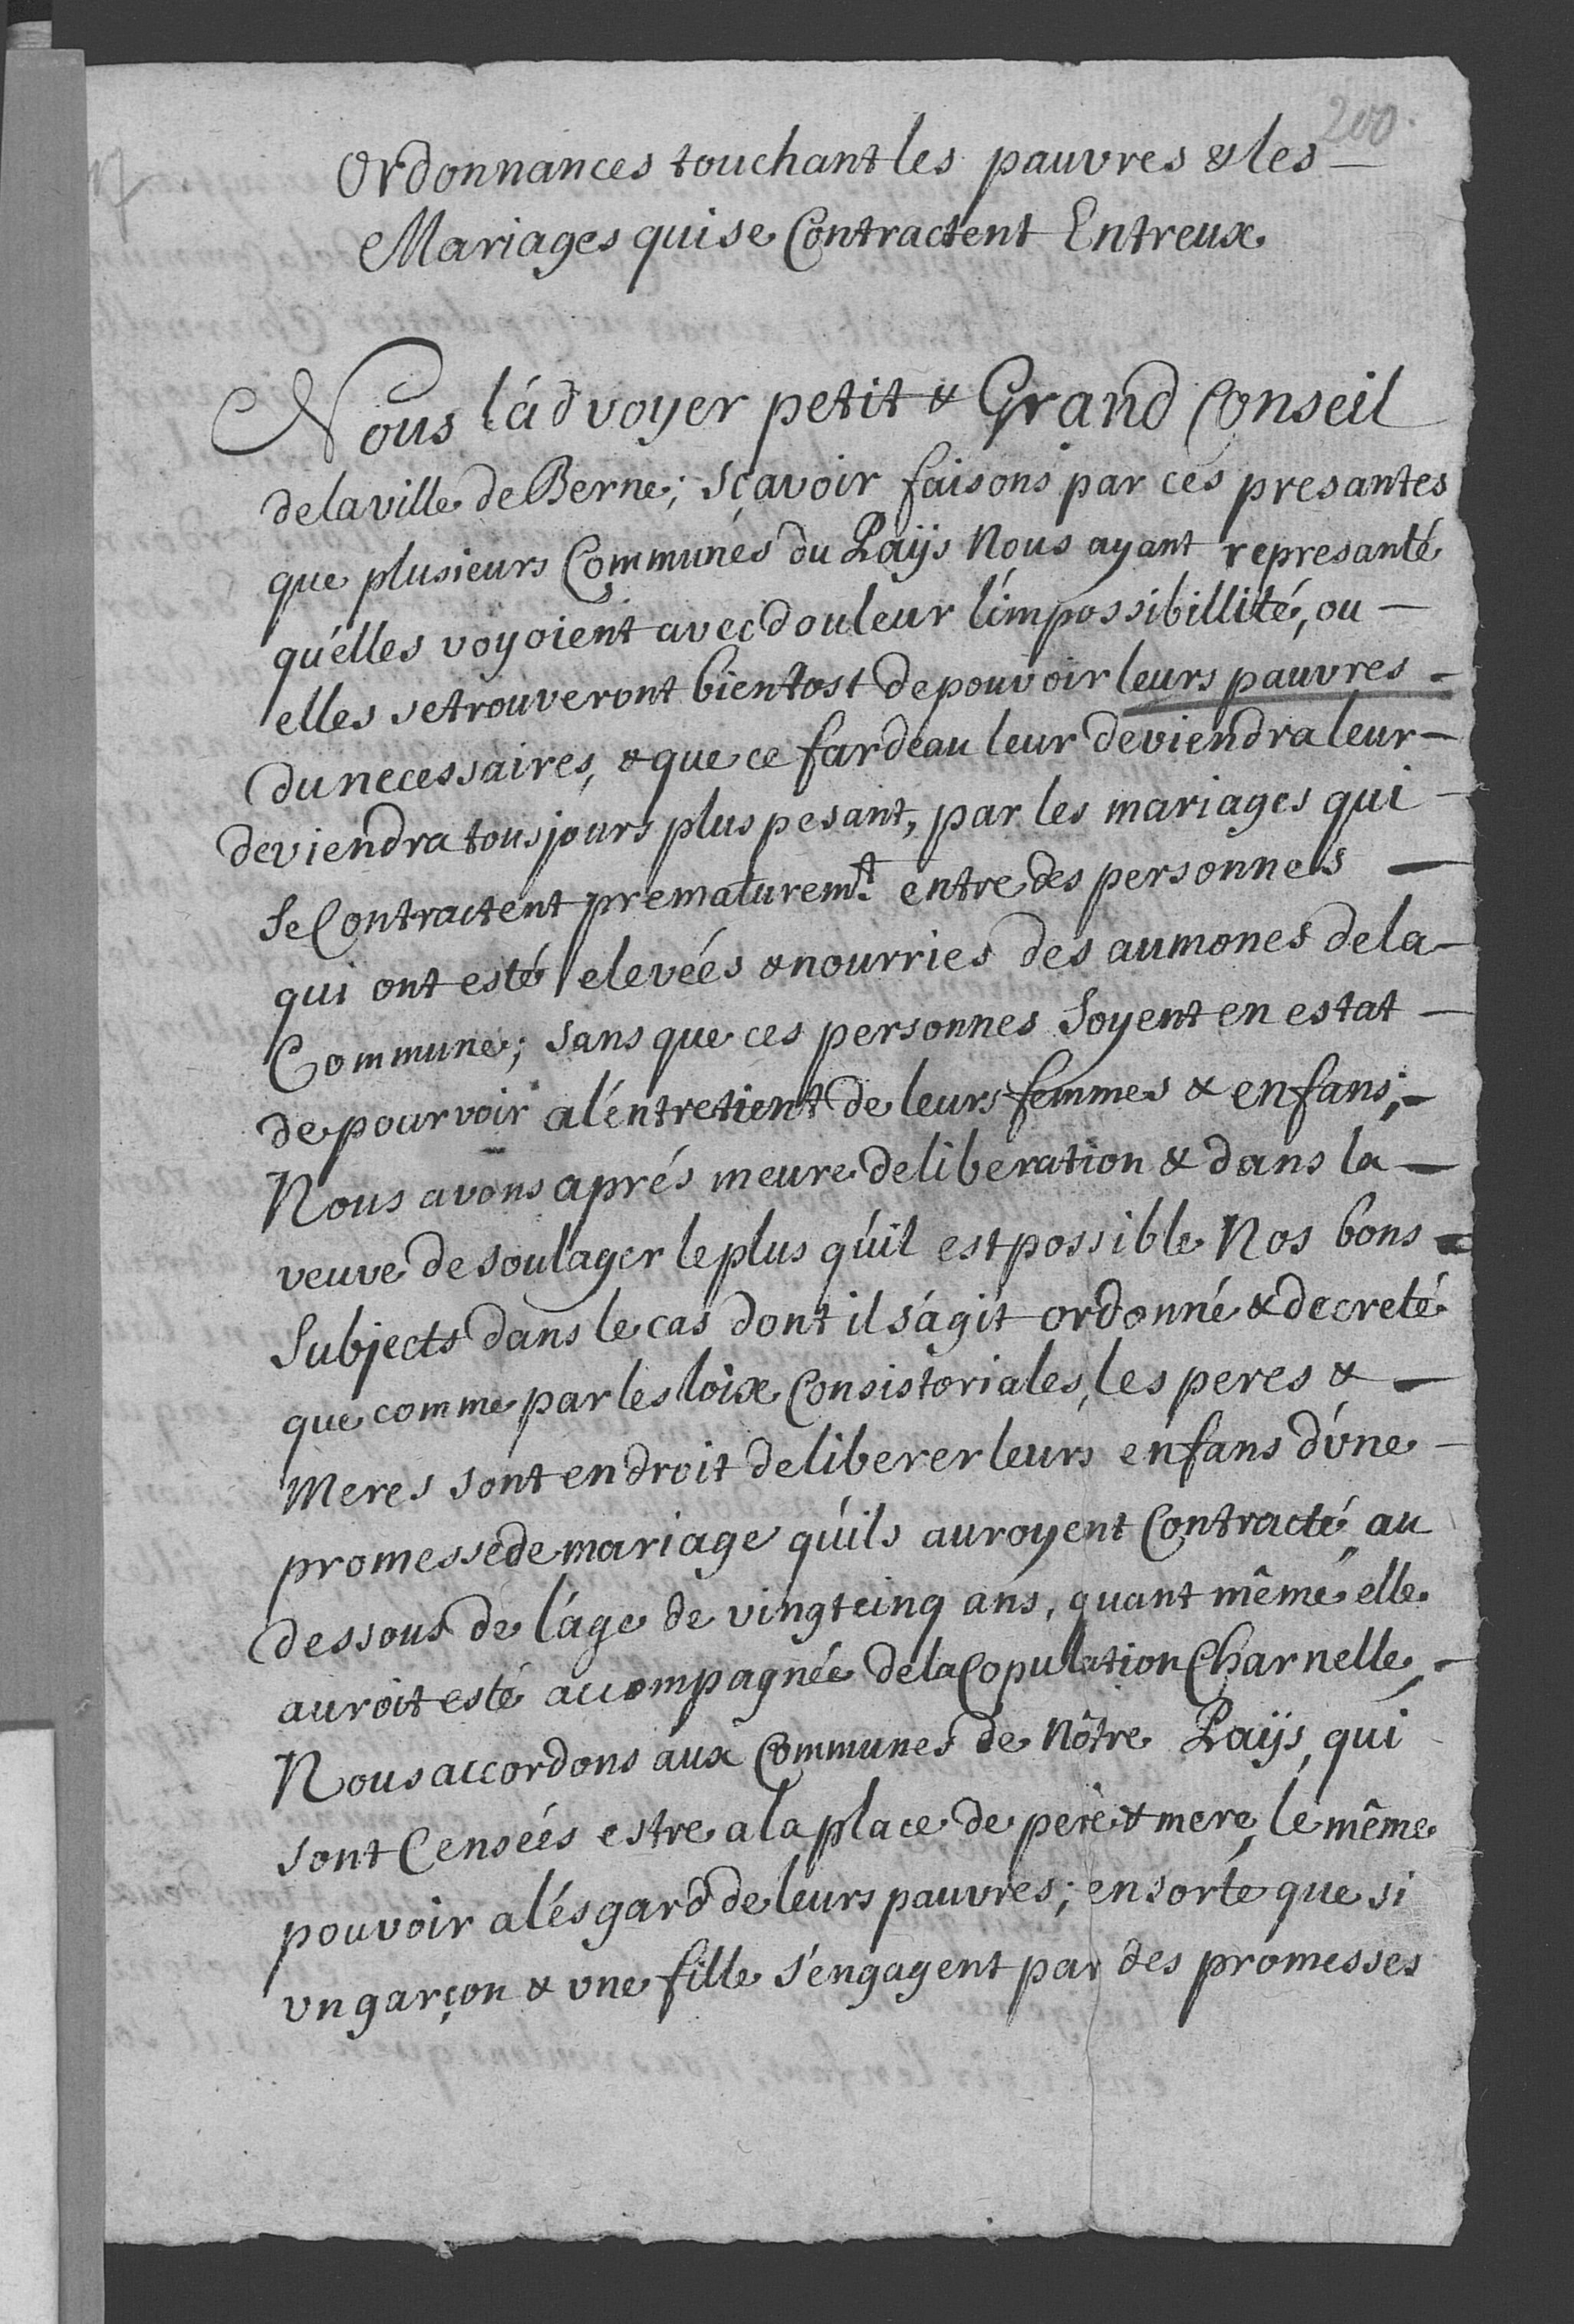 200.
Ordonnances touchant les pauvres & les —
Mariages qui se Contractent Entreux
Nous l'ádvoyer petit & Grand Conseil
de la ville de Berne; sçavoir faisons par ces presantes
que plusieurs Communes du Païjs Nous ayant represanté
qu'elles voyoient avec douleur l'impossibillité, ou —
elles se trouveront bientost de pouvoir leurs pauvres —
du necessaires, & que ce fardeau leur deviendra leur —
deviendra tousjours plus pesant, par les mariages qui —
se Contractent prematuremt. entre des personnes —
qui ont esté elevées & nourries des aumones de la —
Commune; sans que ces personnes Soyent en estat —
de pourvoir a l'entretient de leurs femmes & enfans; —
Nous avons aprés meure deliberation & dans la —
veuve de soulager le plus qu'il est possible Nos bons —
Subjects dans le cas dont il s'agit ordonné & decreté
que comme par les loix Consistoriales, les peres & —
Meres sont en droit de liberer leurs enfans d'une —
promesse de mariage qu'ils auroyent Contracté au
dessous de l'áge de vingtcinq ans, quant même elle
auroit esté accompagnée de la Copulation Charnelle, —
Nous accordons aux Communes de Nôtre Païjs, qui —
sont Censées estre a la place de pere & mere, le même
pouvoir a l'ésgard de leurs pauvres; en sorte que si
un garçon & une fille s'engagent par des promesses